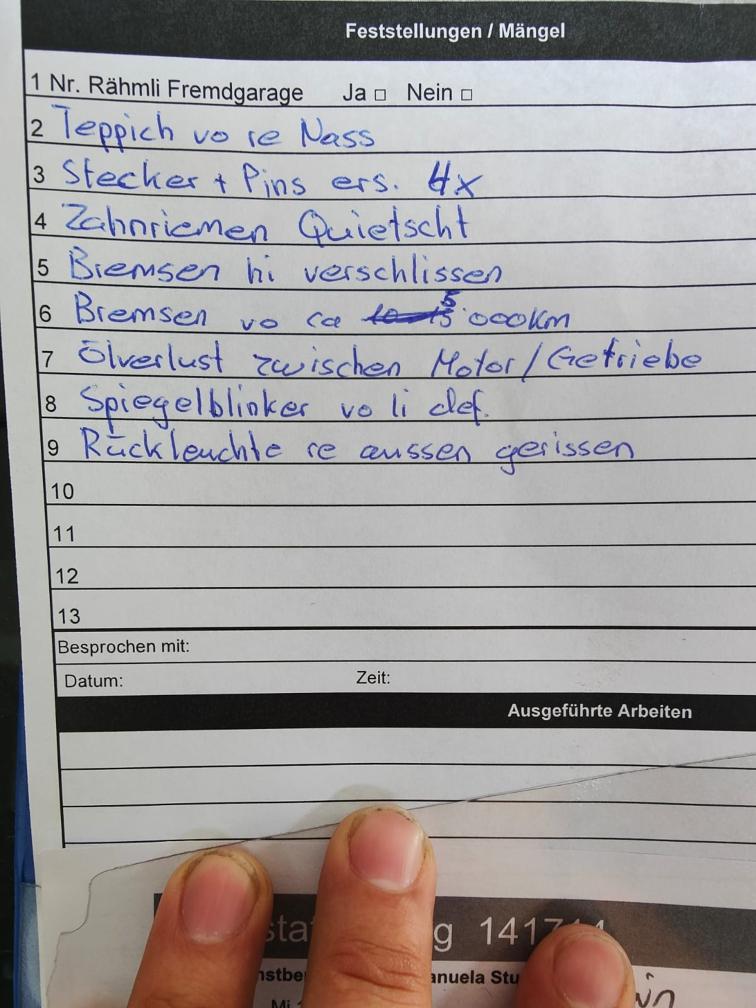 Feststellungen / Mängel
1 Nr. Rähmli Fremdgarage Ja □ Nein □
2 Teppich vo re Nass
3 Stecker + Pins ers. 4x
4 Zahnriemen Quietscht
5 Bremsen hi verschlissen
6 Bremsen vo ca 5'000km
7 Ölverlust zwischen Motor/Getriebe
8 Spiegelblinker vo li def.
9 Rückleuchte re aussen gerissen
10
11
12
13
Besprochen mit:
Datum: Zeit:
Ausgeführte Arbeiten
g 1417
anuela Stu
Mi